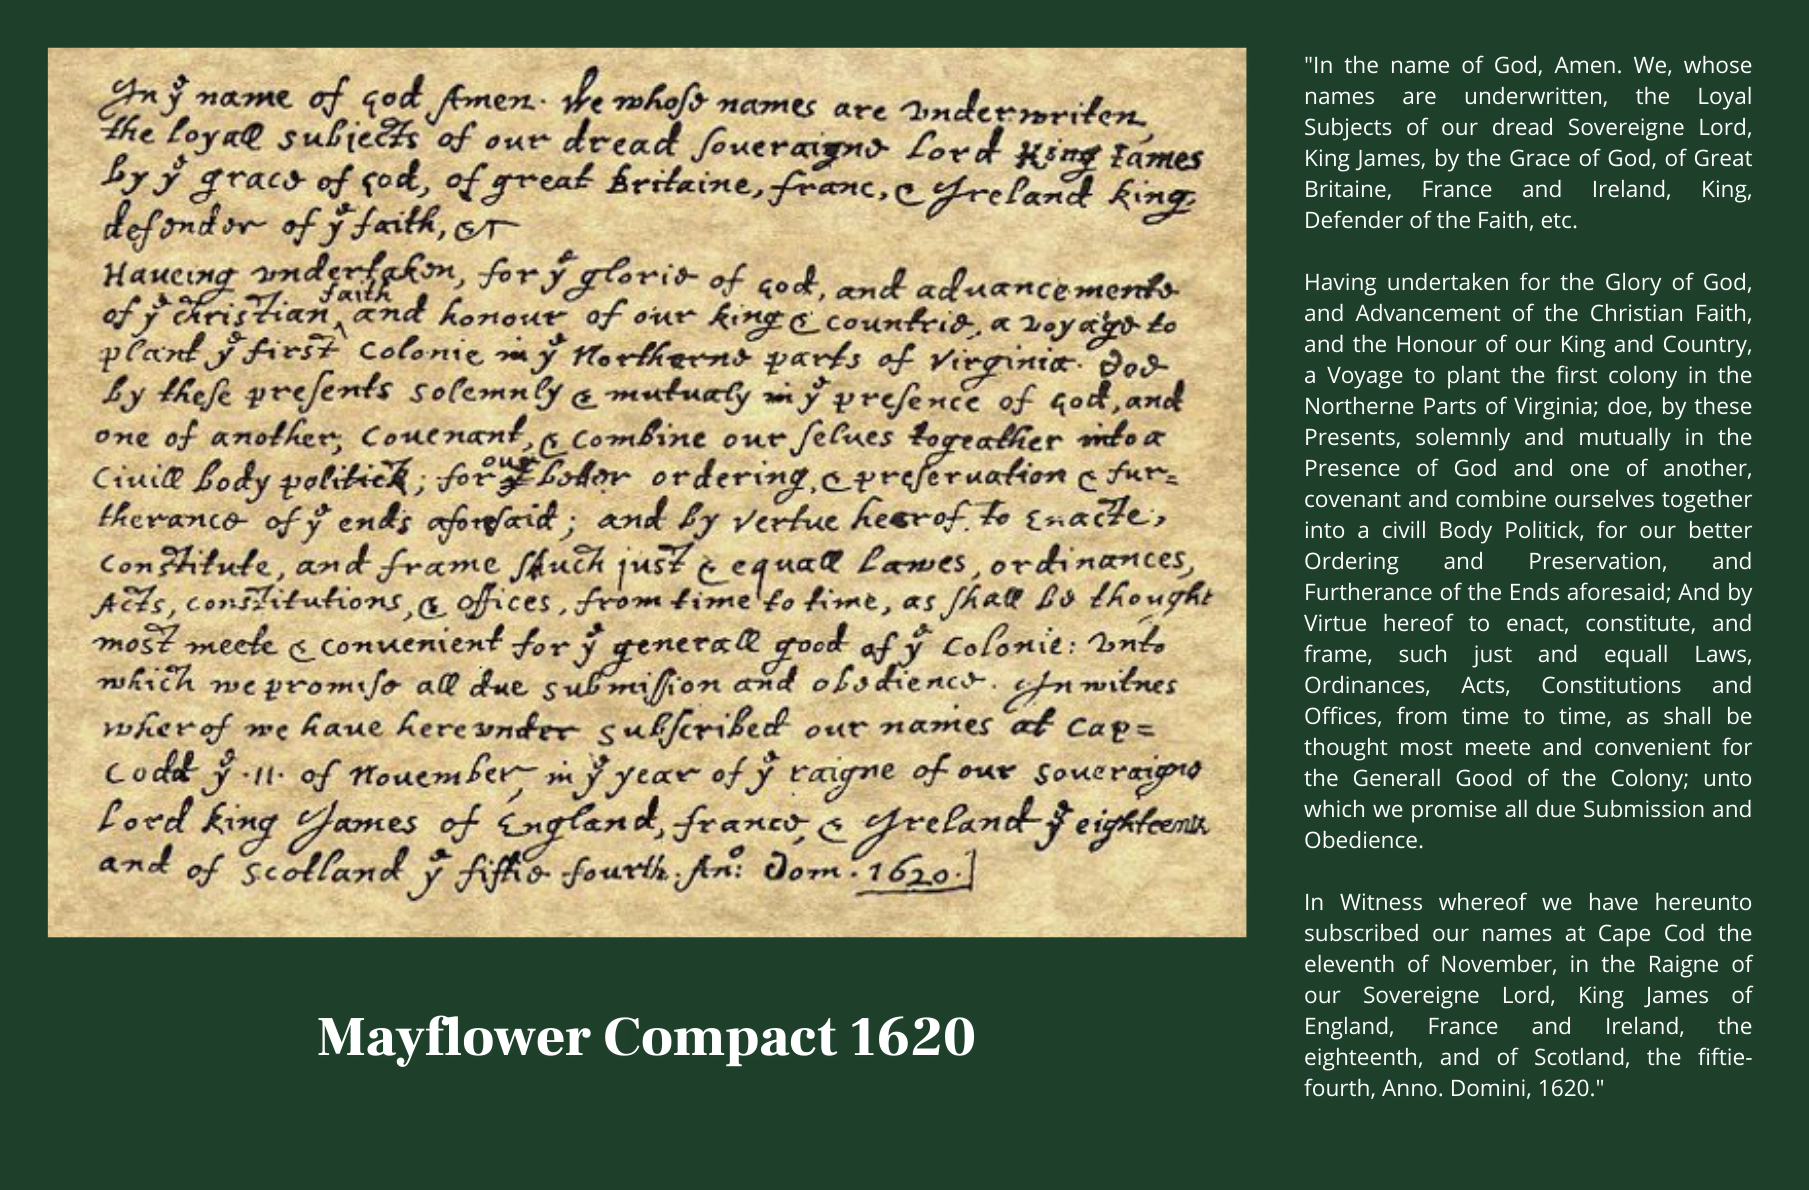 In yͤ name of god Amen. We whoſe names are vnderwriten,
the loyall subjects of our dread ſoueraigne Lord King James
by yͤ grace of god, of great Britaine, franc, & Ireland king,
defender of yͤ faith, &c
Haueing vndertaken, for yͤ glorie of god, and aduancemente
of yͤ christian faith and honour of our king & countrie, a voyage to
plant yͤ first colonie in yͤ Northerne parts of Virginia. Doe
by theſe preſents solemnly & mutualy in yͤ preſence of god, and
one of another, couenant, & combine our ſelues togeather into a
Ciuill body politick; for our better ordering, & preſeruation & fur=
therance of yͤ ends aforeſaid; and by vertue hearof to enacte,
constitute, and frame ſuch just & equall lawes, ordinances,
Acts, constitutions, & offices, from time to time, as ſhall be thought
most meete & conuenient for yͤ generall good of yͤ Colonie: vnto
which we promiſe all due submiſſion and obedience. In witnes
wherof we haue herevnder subſcribed our names at Cap=
Codd yͤ .11. of Nouember, in yͤ year of yͤ raigne of our soueraigne
Lord king James of England, france, & Ireland yͤ eighteenth
and of Scotland yͤ fiftie fourth. Anº: Dom. 1620.]
Mayflower Compact 1620
"In the name of God, Amen. We, whose
names are underwritten, the Loyal
Subjects of our dread Sovereigne Lord,
King James, by the Grace of God, of Great
Britaine, France and Ireland, King,
Defender of the Faith, etc.
Having undertaken for the Glory of God,
and Advancement of the Christian Faith,
and the Honour of our King and Country,
a Voyage to plant the first colony in the
Northerne Parts of Virginia; doe, by these
Presents, solemnly and mutually in the
Presence of God and one of another,
covenant and combine ourselves together
into a civill Body Politick, for our better
Ordering and Preservation, and
Furtherance of the Ends aforesaid; And by
Virtue hereof to enact, constitute, and
frame, such just and equall Laws,
Ordinances, Acts, Constitutions and
Offices, from time to time, as shall be
thought most meete and convenient for
the Generall Good of the Colony; unto
which we promise all due Submission and
Obedience.
In Witness whereof we have hereunto
subscribed our names at Cape Cod the
eleventh of November, in the Raigne of
our Sovereigne Lord, King James of
England, France and Ireland, the
eighteenth, and of Scotland, the fiftie-
fourth, Anno. Domini, 1620."